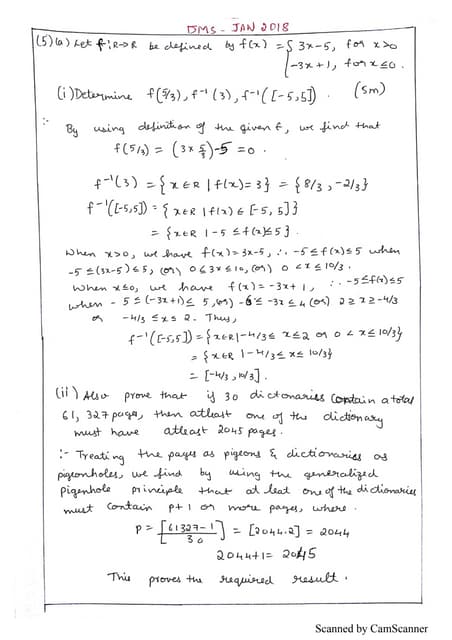 DMS - JAN 2018
(5)(a) Let f:R→R be defined by f(x) = { 3x-5, for x>0
-3x+1, for x≤0.
(i) Determine f(5/3), f⁻¹(3), f⁻¹([-5,5]). (5m)
:- By using definition of the given f, we find that
f(5/3) = (3×5/3)-5 = 0.
f⁻¹(3) = {x∈R | f(x)=3} = {8/3, -2/3}
f⁻¹([-5,5]) = {x∈R | f(x)∈[-5,5]}
= {x∈R | -5≤f(x)≤5}.
When x>0, we have f(x)=3x-5, ∴ -5≤f(x)≤5 when
-5≤(3x-5)≤5, (or) 0≤3x≤10, (or) 0<x≤10/3.
When x≤0, we have f(x)=-3x+1, ∴ -5≤f(x)≤5
when -5≤(-3x+1)≤5, (or) -6≤-3x≤4 (or) 2≥x≥-4/3
or -4/3≤x≤2. Thus,
f⁻¹([-5,5]) = {x∈R|-4/3≤x≤2 or 0<x≤10/3}
= {x∈R |-4/3≤x≤10/3}
= [-4/3,10/3].
(ii) Also prove that if 30 dictonaries contain a total
61,327 pages, then atleast one of the dictionary
must have atleast 2045 pages.
:- Treating the pages as pigeons & dictionaries as
pigeonholes, we find by using the generalized
pigenhole principle that at leat one of the dictionaries
must contain p+1 or more pages, where.
p = [61327-1/30] = [2044.2] = 2044
2044+1= 2045
This proves the required result.
Scanned by CamScanner